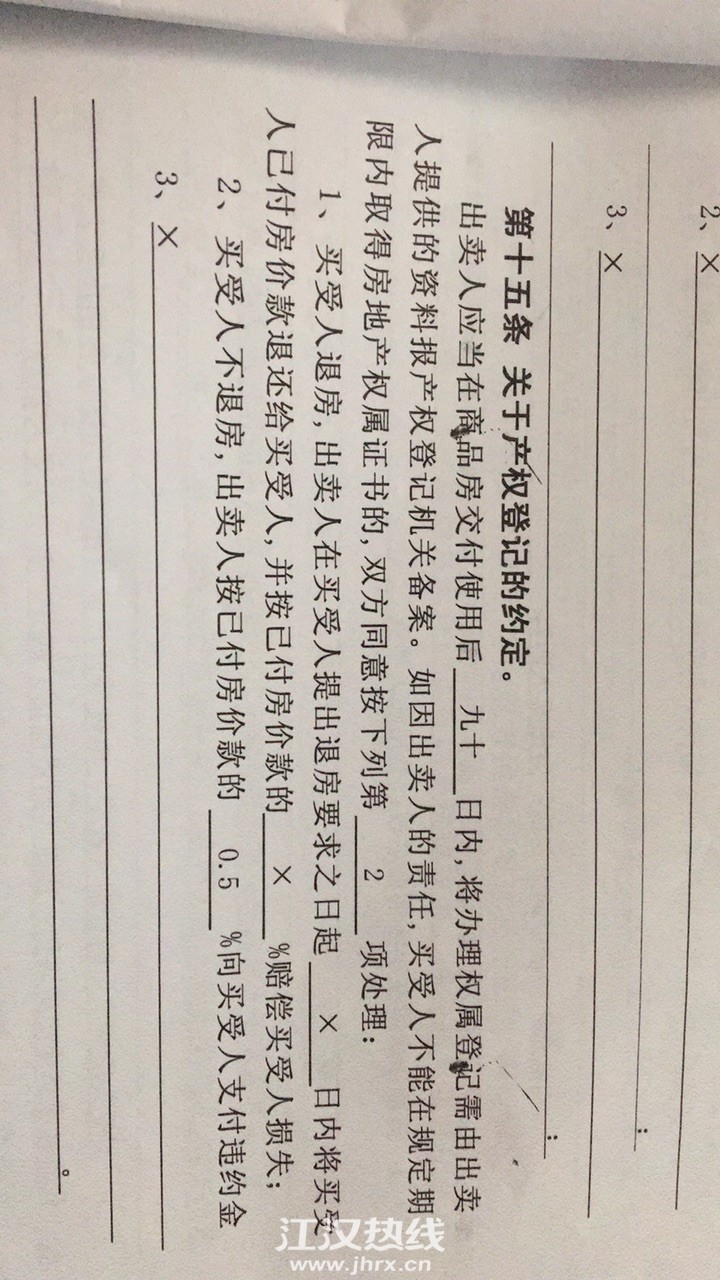 2、×
3、×
；
；
第十五条 关于产权登记的约定。
出卖人应当在商品房交付使用后 九十 日内，将办理权属登记需由出卖
人提供的资料报产权登记机关备案。如因出卖人的责任，买受人不能在规定期
限内取得房地产权属证书的，双方同意按下列第 2 项处理：
1、买受人退房，出卖人在买受人提出退房要求之日起 × 日内将买受
人已付房价款退还给买受人，并按已付房价款的 × %赔偿买受人损失；
2、买受人不退房，出卖人按已付房价款的 0.5 %向买受人支付违约金
3、×
。
江汉热线
www.jhrx.cn